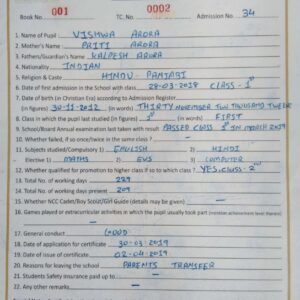 Book No. 001 TC. No. 0002 Admission No. 34
1. Name of Pupil : VISHWA ARORA
2. Mother's Name : PRITI ARORA
3. Fathers/Guardian's Name : KALPESH ARORA
4. Nationality : INDIAN
5. Religion & Caste : HINDU - PANJABI
6. Date of first admission in the School with class : 28-03-2018 CLASS - 1st
7. Date of Birth (in Christian Era) according to Admission Register
(in figures) 30-11-2012 (in words) THIRTY NOVEMBER TWO THOUSAND TWELVE
8. Class in which the pupil last studied (in figures) : 1st (in words) FIRST
9. School/Board Annual examination last taken with result PASSED CLASS 1st IN MARCH 2019
10. Whether failed, if so once/twice in the same class ? -
11. Subjects studied/Compulsory 1) ENGLISH 2) HINDI
Elective 1) MATHS 2) EVS 3) COMPUTER
12. Whether qualified for promotion to higher class if so to which class : ? YES, CLASS - 2nd
13. Total No. of working days 229
14. Total No. of working days present 209
15. Whether NCC Cadet/Boy Scout/Girl Guide (details may be given) -
16. Games played or extracurricular activities in which the pupil usually took part (mention achievement level therein)
17. General conduct GOOD
18. Date of application for certificate 30-03-2019
19. Date of issue of certificate 02-04-2019
20. Reasons for leaving the school PARENTS TRANSFER
21. Students Safety insurance paid up to -
22. Any other remarks -